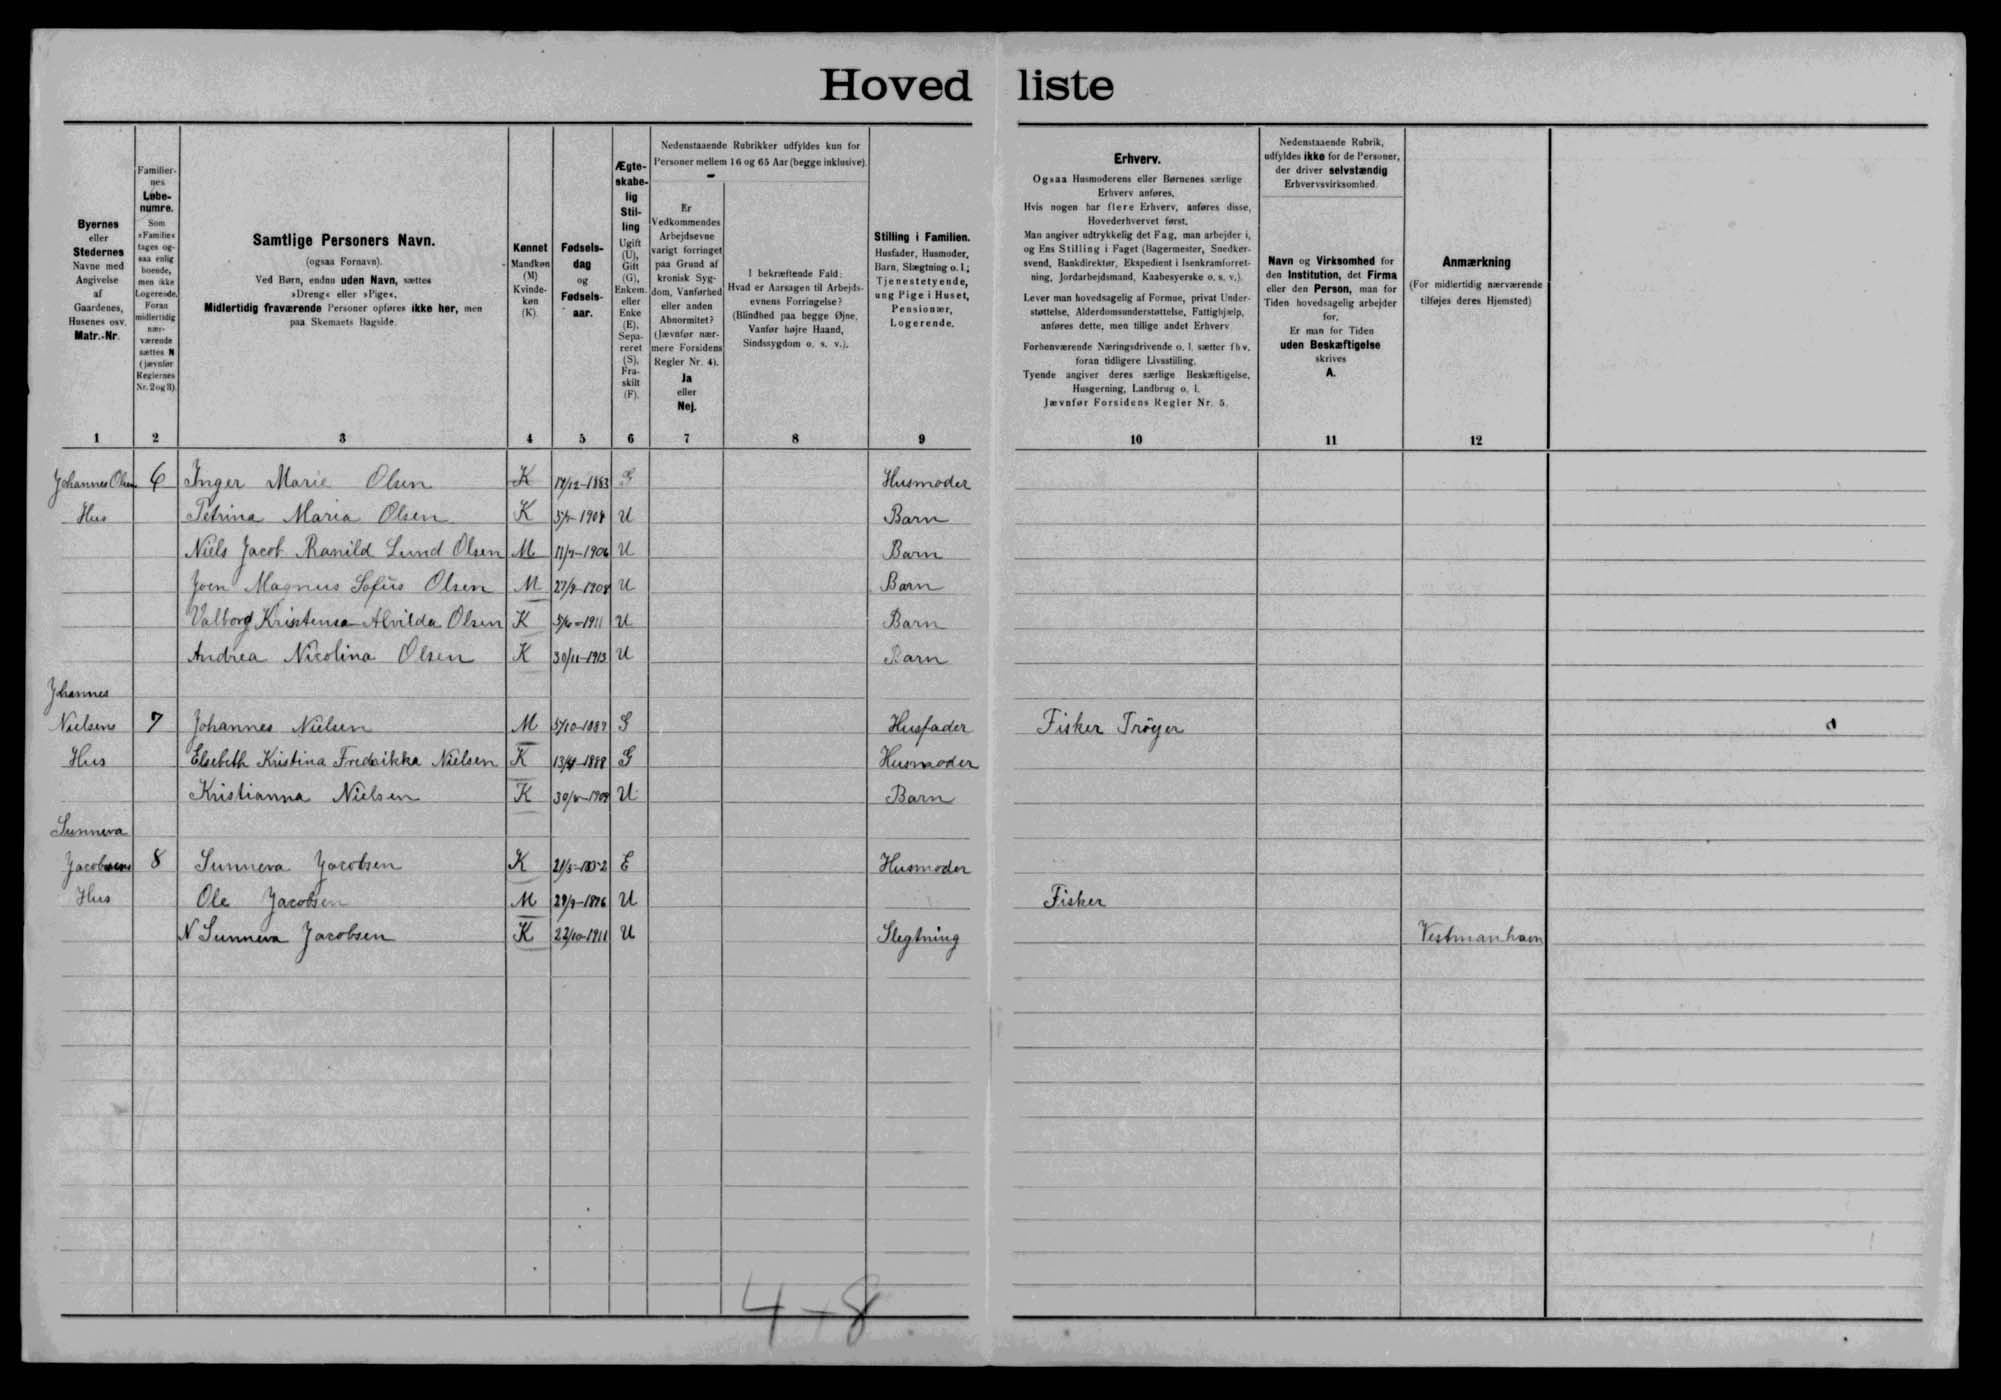 Hovedliste
Byernes
eller
Stedernes
Navne med
Angivelse
af
Gaardenes,
Husenes osv.
Matr.-Nr.
Familier-
nes
Løbe-
numre.
Som
»Familie«
tages og-
saa enlig
boende,
men ikke
Logerende.
Foran
midlertidig
nær-
værende
sættes N
(jævnfør
Reglernes
Nr. 2 og 3).
Samtlige Personers Navn.
(ogsaa Fornavn).
Ved Børn, endnu uden Navn, sættes
»Dreng« eller »Pige«.
Midlertidig fraværende Personer opføres ikke her, men
paa Skemaets Bagside.
Kønnet
Mandkøn
(M)
Kvinde-
køn
(K).
Fødsels-
dag
og
Fødsels-
aar.
Ægte-
skabe-
lig
Stil-
ling
Ugift
(U),
Gift
(G),
Enkem.
eller
Enke
(E),
Sepa-
reret
(S),
Fra-
skilt
(F).
Nedenstaaende Rubrikker udfyldes kun for
Personer mellem 16 og 65 Aar (begge inklusive).
Er
Vedkommendes
Arbejdsevne
varigt forringet
paa Grund af
kronisk Syg-
dom, Vanførhed
eller anden
Abnormitet?
(Jævnfør nær-
mere Forsidens
Regler Nr. 4).
Ja
eller
Nej.
I bekræftende Fald:
Hvad er Aarsagen til Arbejds-
evnens Forringelse?
(Blindhed paa begge Øjne,
Vanfør højre Haand,
Sindssygdom o. s. v.).
Stilling i Familien.
Husfader, Husmoder,
Barn, Slægtning o. l.;
Tjenestetyende,
ung Pige i Huset,
Pensionær,
Logerende.
Erhverv.
Ogsaa Husmoderens eller Børnenes særlige
Erhverv anføres.
Hvis nogen har flere Erhverv, anføres disse,
Hovederhvervet først.
Man angiver udtrykkelig det Fag, man arbejder i,
og Ens Stilling i Faget (Bagermester, Snedker-
svend, Bankdirektør, Ekspedient i Isenkramforret-
ning, Jordarbejdsmand, Kaabesyerske o. s. v.).
Lever man hovedsagelig af Formue, privat Under-
støttelse, Alderdomsunderstøttelse, Fattighjælp,
anføres dette, men tillige andet Erhverv
Forhenværende Næringsdrivende o. l. sætter fhv.
foran tidligere Livsstilling.
Tyende angiver deres særlige Beskæftigelse,
Husgerning, Landbrug o. l.
Jævnfør Forsidens Regler Nr. 5.
Nedenstaaende Rubrik,
udfyldes ikke for de Personer,
der driver selvstændig
Erhvervsvirksomhed.
Navn og Virksomhed for
den Institution, det Firma
eller den Person, man for
Tiden hovedsagelig arbejder
for.
Er man for Tiden
uden Beskæftigelse
skrives
A.
Anmærkning
(For midlertidig nærværende
tilføjes deres Hjemsted)
1 2 3 4 5 6 7 8 9 10 11 12
Johannes Olsen 6 Inger Marie Olsen K 17/12-1883 G Husmoder
Hus Petrina Maria Olsen K U Barn
Niels Jacob Ranild Lund Olsen M 11/7-1906 U Barn
Joen Magnus Sofus Olsen M U Barn
Valborg Kristensa Alvilda Olsen K 5/6-1911 U Barn
Andrea Nicolina Olsen K 30/11-1913 U Barn
Johannes
Nielsens 7 Johannes Nielsen M G Husfader Fisker Trøjer
Hus Elsebeth Kristina Fredrikka Nielsen K G Husmoder
Kristianna Nielsen K U Barn
Sunneva
Jacobsens 8 Sunneva Jacobsen K 21/5-1852 E Husmoder
Hus Ole Jacobsen M 29/9-1876 U Fisker
N Sunneva Jacobsen K 22/10-1911 U Slegtning Vestmanhavn
4+8